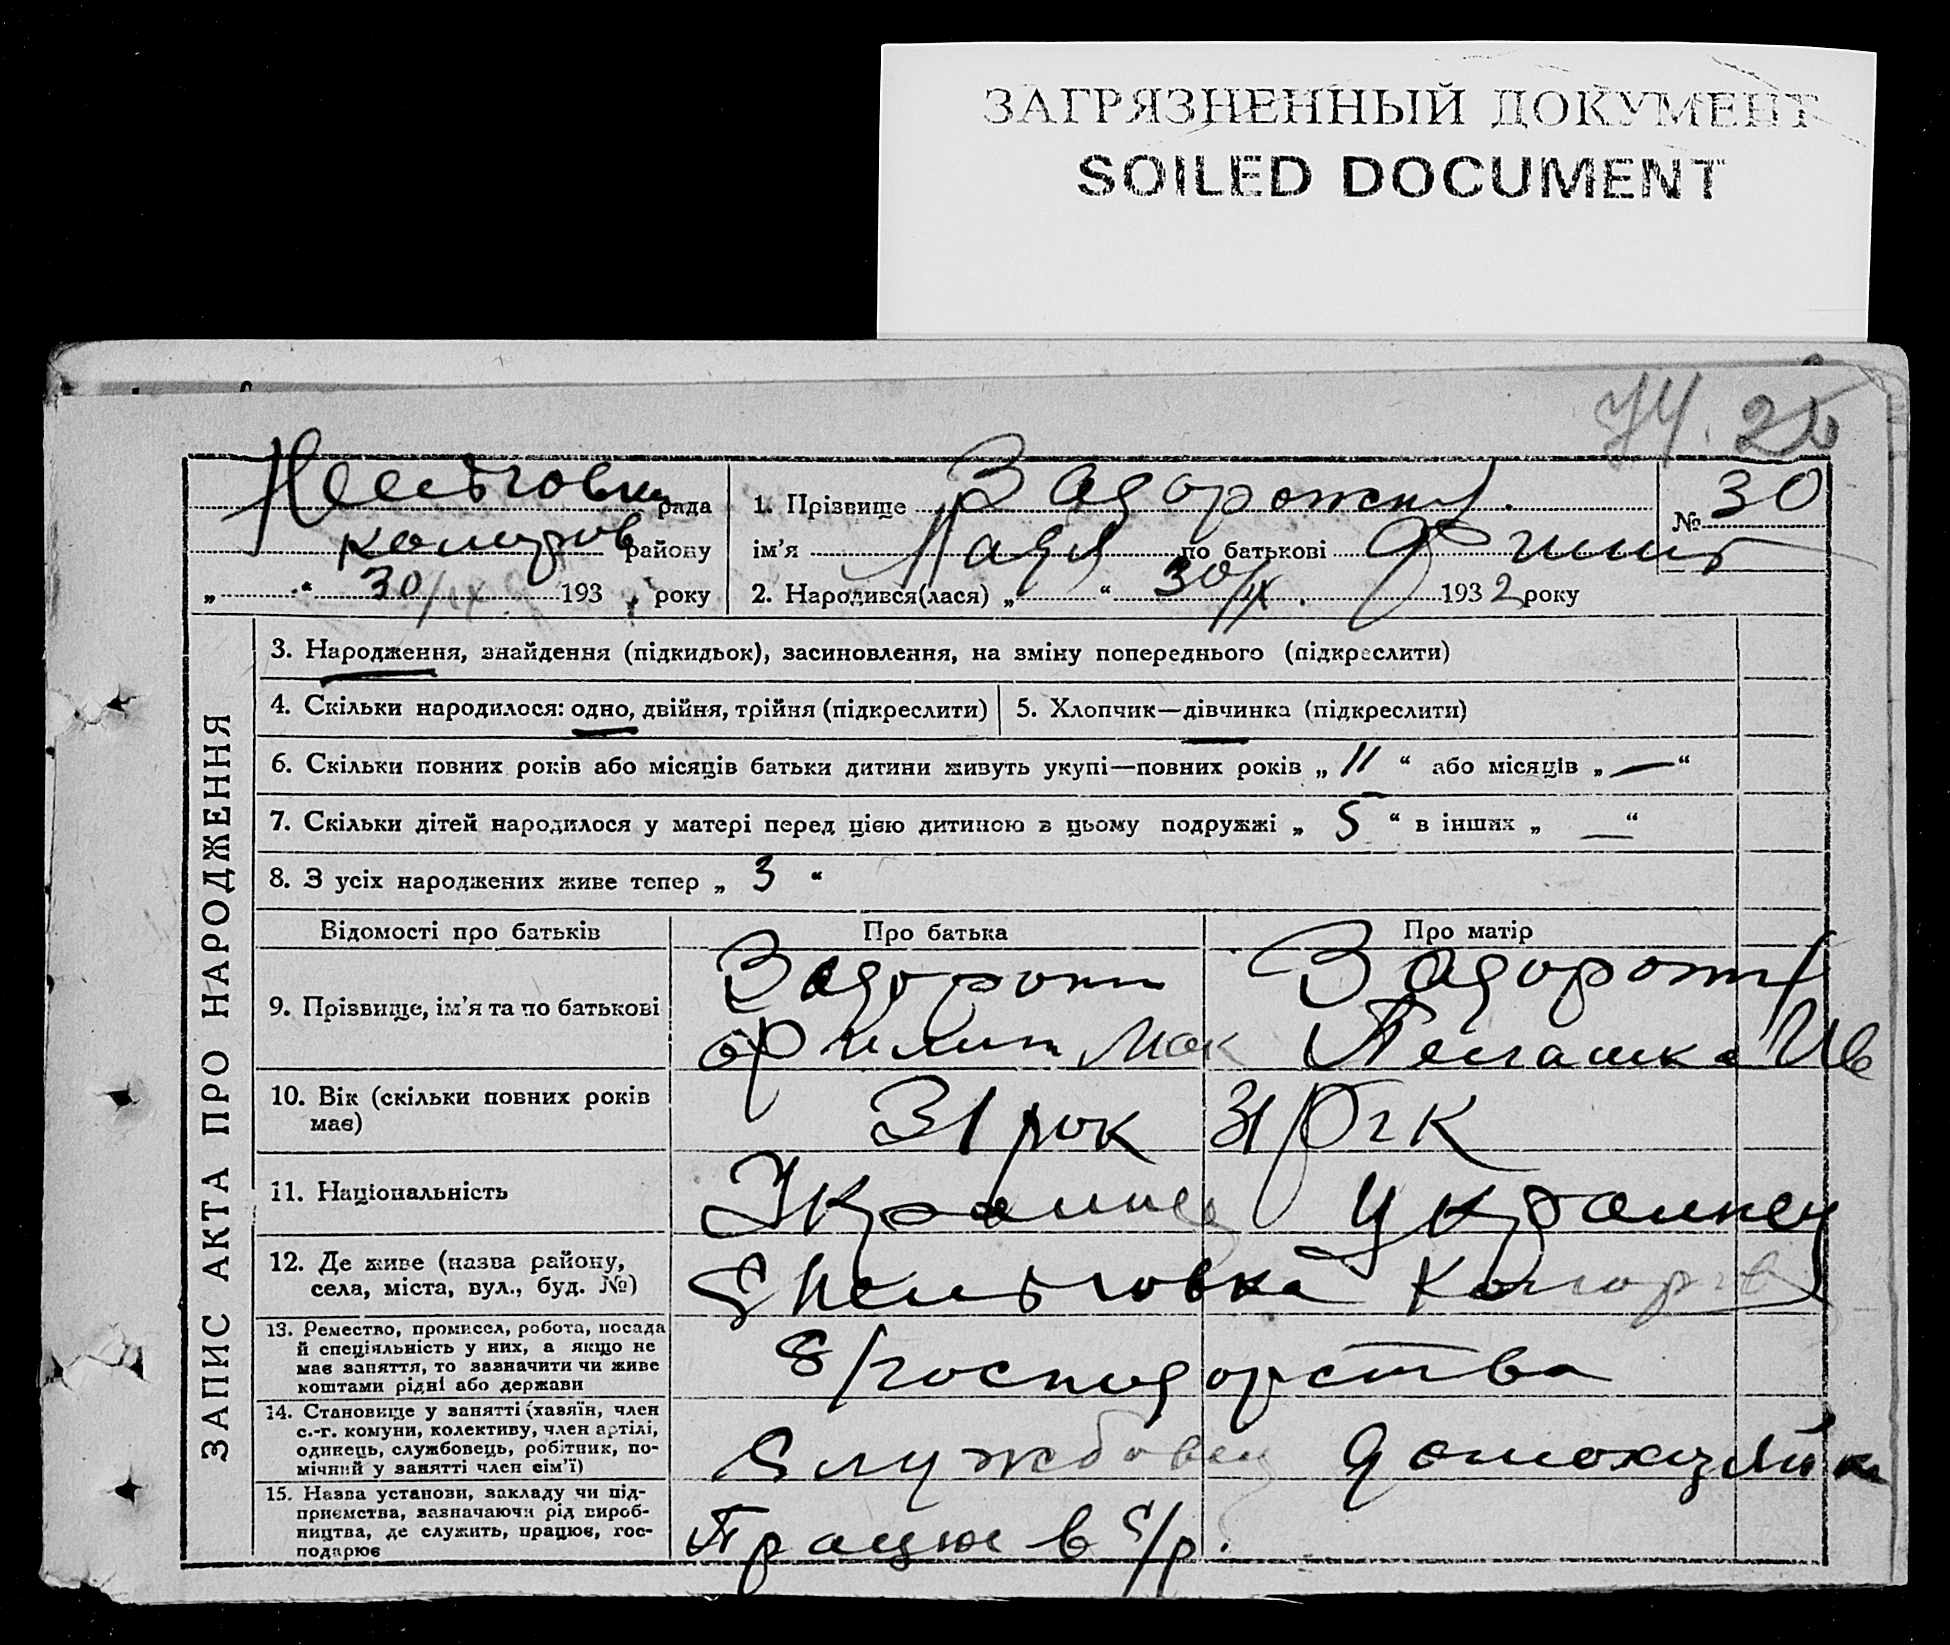 ЗАГРЯЗНЕННЫЙ ДОКУМЕНТ
SOILED DOCUMENT
74. 25
рада
району
„ “ 30/IX 193 року
1. Прізвище Задорожня
ім’я Надя по батькові Филип
2. Народився(лася) „ “ 30/IX. 1932 року
№ 30
ЗАПИС АКТА ПРО НАРОДЖЕННЯ
3. Народження, знайдення (підкидьок), засиновлення, на зміну попереднього (підкреслити)
4. Скільки народилося: одно, двійня, трійня (підкреслити)
5. Хлопчик—дівчинка (підкреслити)
6. Скільки повних років або місяців батьки дитини живуть укупі—повних років „ 11 “ або місяців „ — “
7. Скільки дітей народилося у матері перед цією дитиною в цьому подружжі „ 5 “ в інших „ — “
8. З усіх народжених живе тепер „ 3 “
Відомості про батьків
Про батька
Про матір
9. Прізвище, ім’я та по батькові
Задорожн
Филип Мак
Задорожня
Пелашка Ив
10. Вік (скільки повних років
має)
31 рок
31 рок
11. Національність
Украинец
Украинец
12. Де живе (назва району,
села, міста, вул., буд. №)
13. Ремество, промисел, робота, посада
й спеціяльність у них, а якщо не
має заняття, то зазначити чи живе
коштами рідні або держави
с/господорства
14. Становище у занятті (хазяїн, член
с.-г. комуни, колективу, член артілі,
одинець, службовець, робітник, по-
мічний у занятті член сім’ї)
Службовец
домохазяйка
15. Назва установи, закладу чи під-
приємства, зазначаючи рід вироб-
ництва, де служить, працює, гос-
подарює
Працює в с/р.